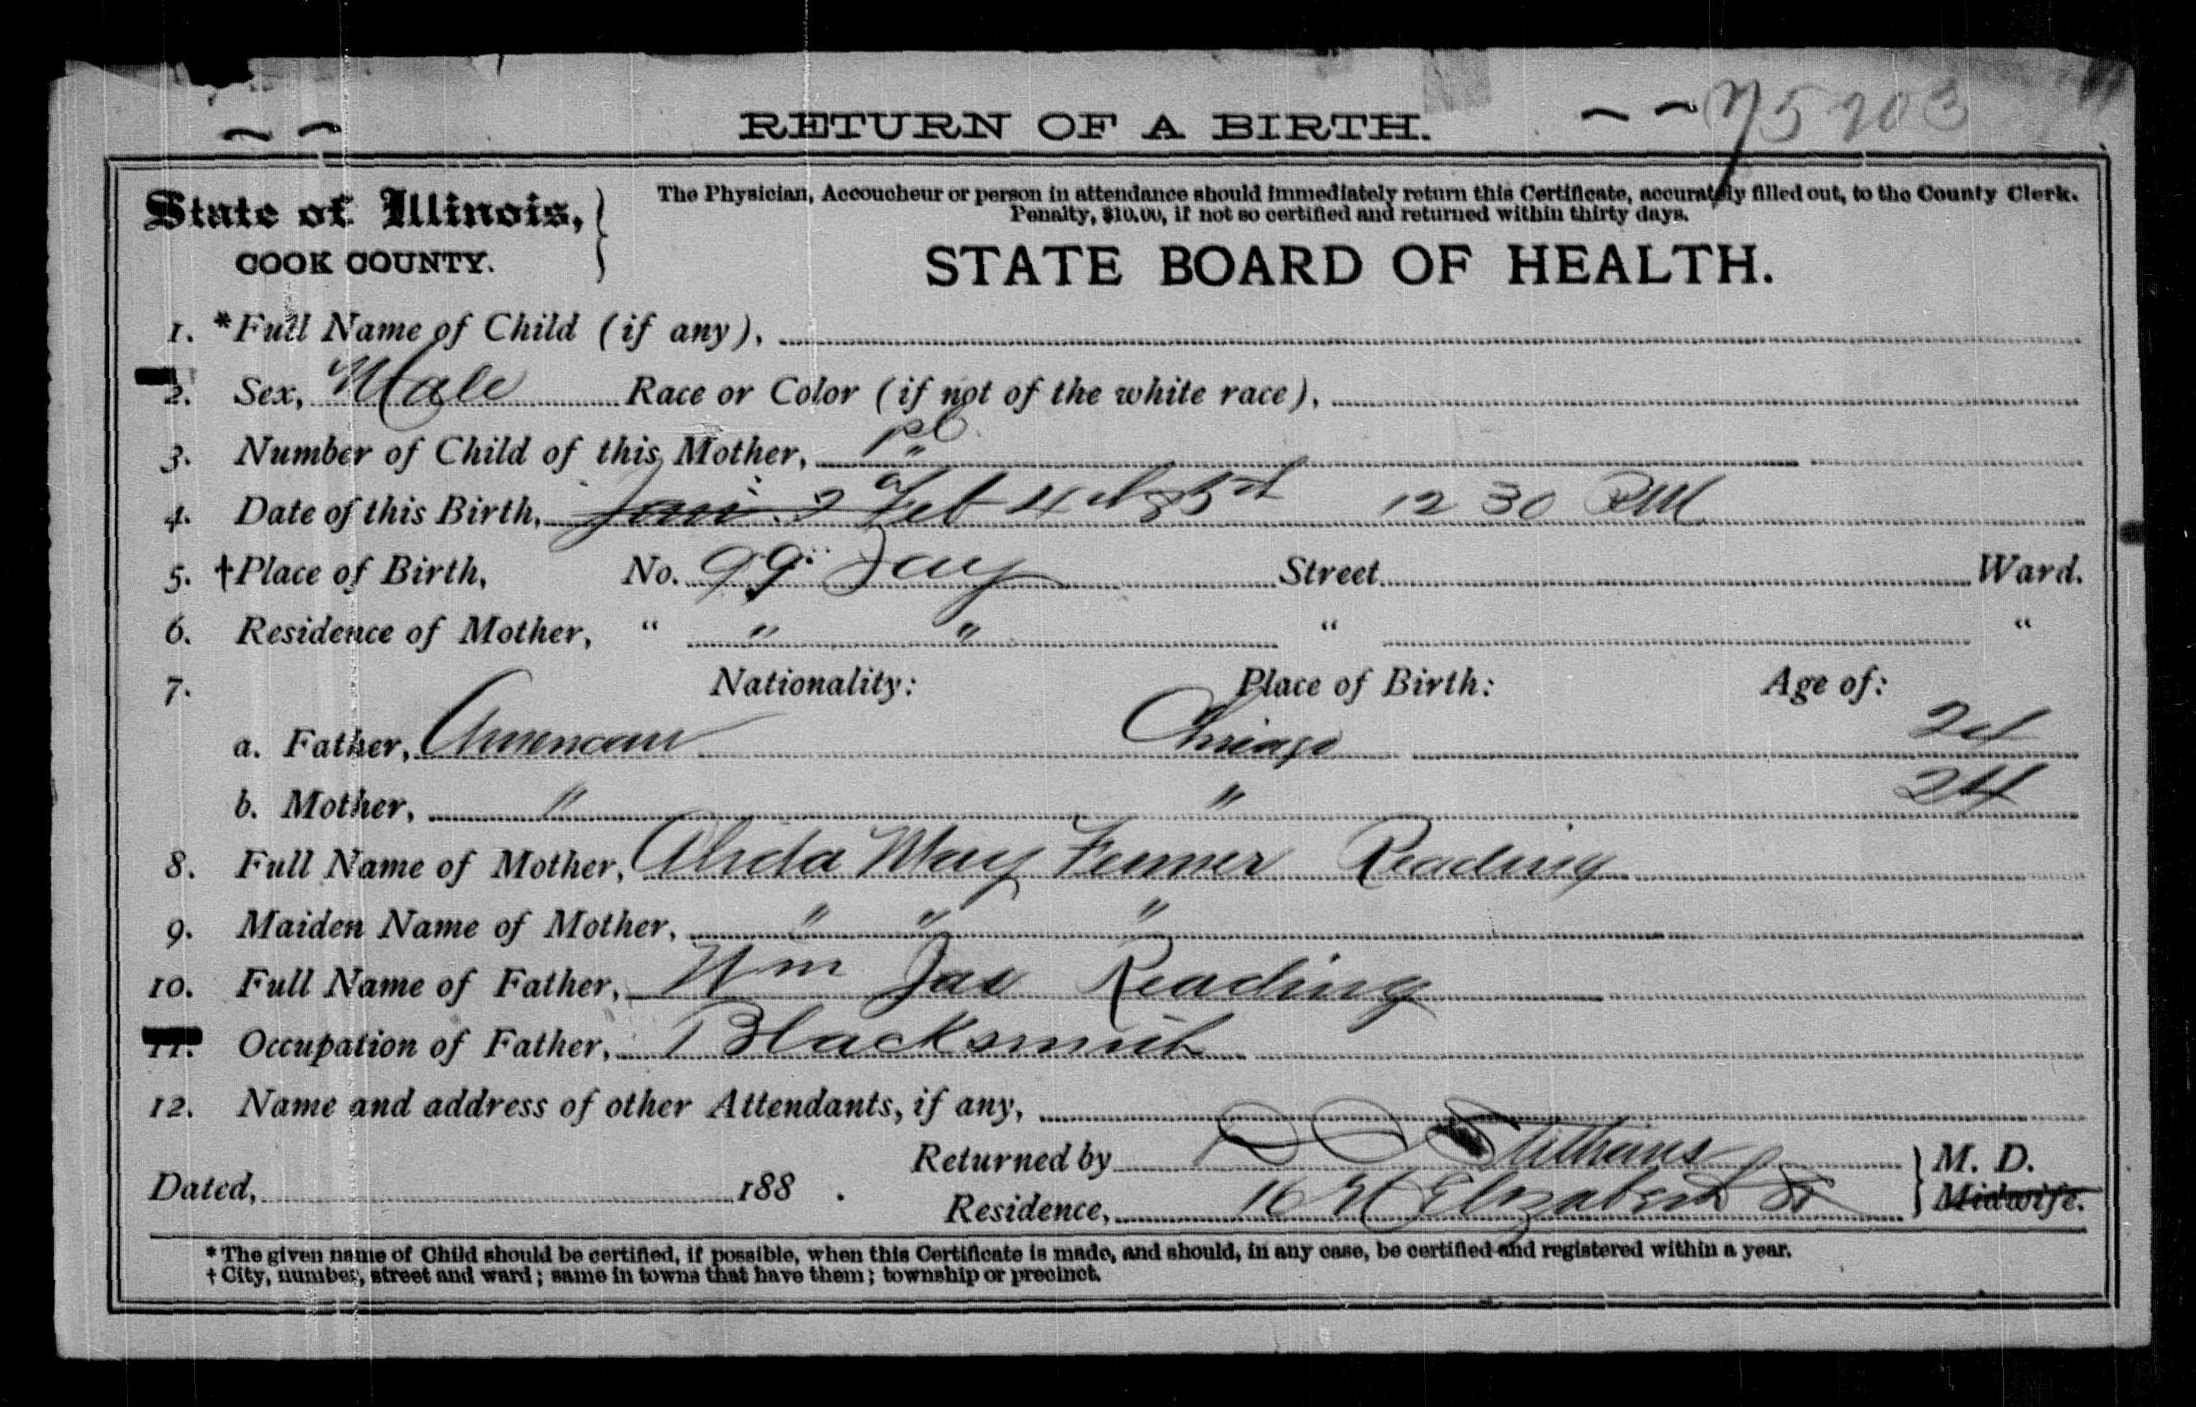 75203
RETURN OF A BIRTH.
State of Illinois,
COOK COUNTY.
The Physician, Accoucheur or person in attendance should immediately return this Certificate, accurately filled out, to the County Clerk.
Penalty, $10.00, if not so certified and returned within thirty days.
STATE BOARD OF HEALTH.
1. *Full Name of Child (if any),
2. Sex, Male Race or Color (if not of the white race),
3. Number of Child of this Mother, 1st
4. Date of this Birth, Jan 2 Feb 4 12 30 PM
5. †Place of Birth, No. 99 Jay Street Ward.
6. Residence of Mother, " " " " "
7. Nationality: Place of Birth: Age of:
a. Father, American Chicago 24
b. Mother, " " 24
8. Full Name of Mother, Alida May Fenner Reading
9. Maiden Name of Mother, " " "
10. Full Name of Father, Wm Jas Reading
11. Occupation of Father, Blacksmith
12. Name and address of other Attendants, if any,
Returned by M. D.
Dated, 188 .
Residence, 16 Elizabeth St Midwife.
* The given name of Child should be certified, if possible, when this Certificate is made, and should, in any case, be certified and registered within a year.
† City, number, street and ward; same in towns that have them; township or precinct.